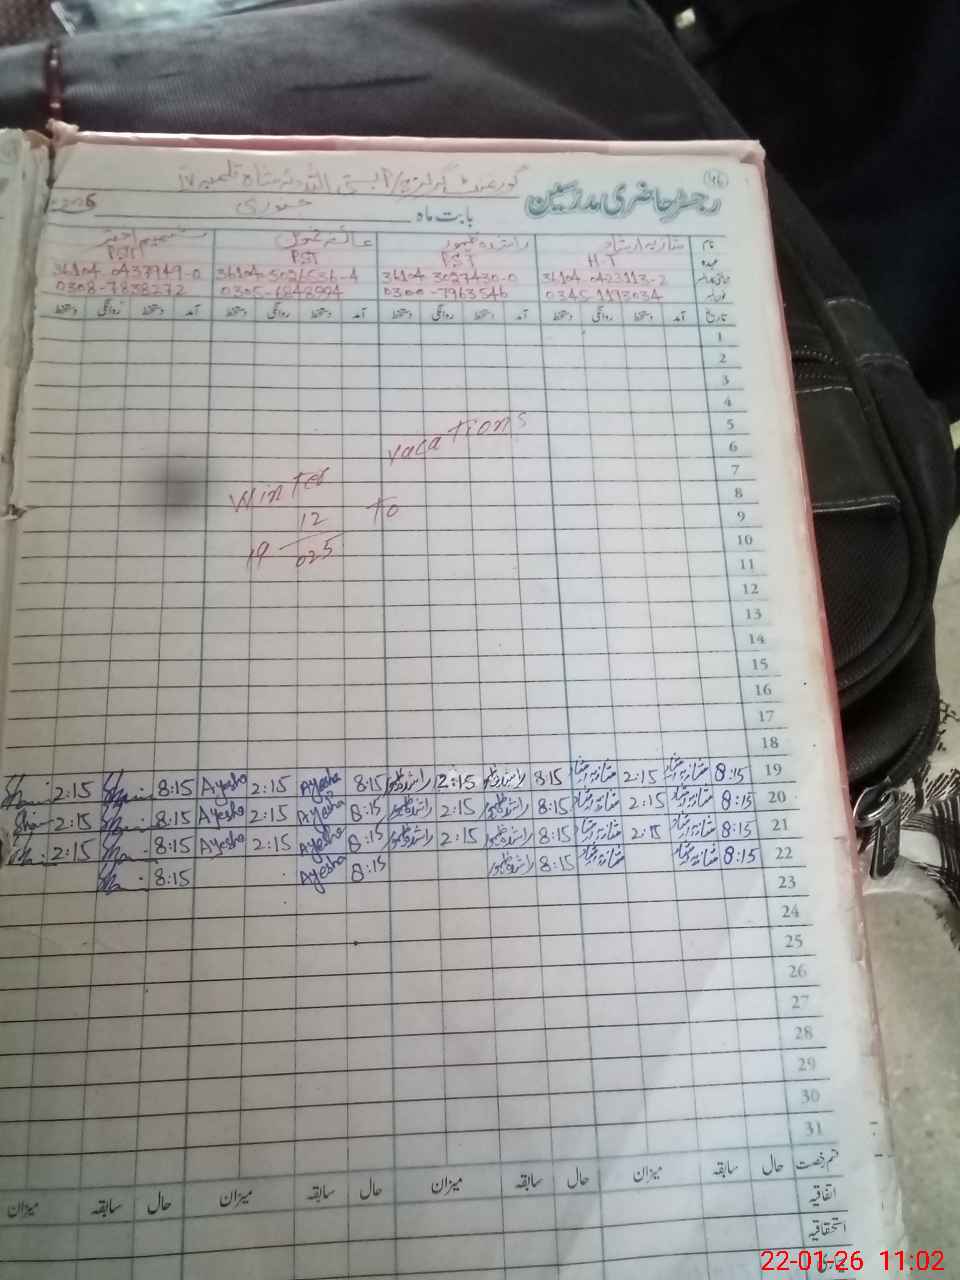 رجسٹر حاضری مدرسین
بابت ماہ جنوری 2026
نام شازیہ ارشاد راشدہ ظہور عائشہ بتول شمیم اختر
عہدہ H.T PST PST PST
36104-0423113-2 36104-3027430-0 36104-5026536-4 36104-0437949-0
0345-1193034 0300-7963546 0305-6848994 0308-7838272
تاریخ آمد دستخط روانگی دستخط آمد دستخط روانگی دستخط آمد دستخط روانگی دستخط آمد دستخط روانگی دستخط
1
2
3
4
5
6
7
8
9
10
11
12
13
14
15
16
17
18
Winter vacations
19 12 025 To
19 8:15 شازیہ ارشاد 2:15 شازیہ ارشاد 8:15 راشدہ ظہور 2:15 راشدہ ظہور 8:15 Ayesha 2:15 Ayesha 8:15 2:15
20 8:15 شازیہ ارشاد 2:15 شازیہ ارشاد 8:15 راشدہ ظہور 2:15 راشدہ ظہور 8:15 Ayesha 2:15 Ayesha 8:15 2:15
21 8:15 شازیہ ارشاد 2:15 شازیہ ارشاد 8:15 راشدہ ظہور 2:15 راشدہ ظہور 8:15 Ayesha 2:15 Ayesha 8:15 2:15
22 8:15 شازیہ ارشاد شازیہ ارشاد 8:15 راشدہ ظہور 8:15 Ayesha 8:15
23
24
25
26
27
28
29
30
31
قسم رخصت حال سابقہ میزان حال سابقہ میزان حال سابقہ میزان حال سابقہ میزان
اتفاقیہ
استحقاقیہ
22-01-26 11:02